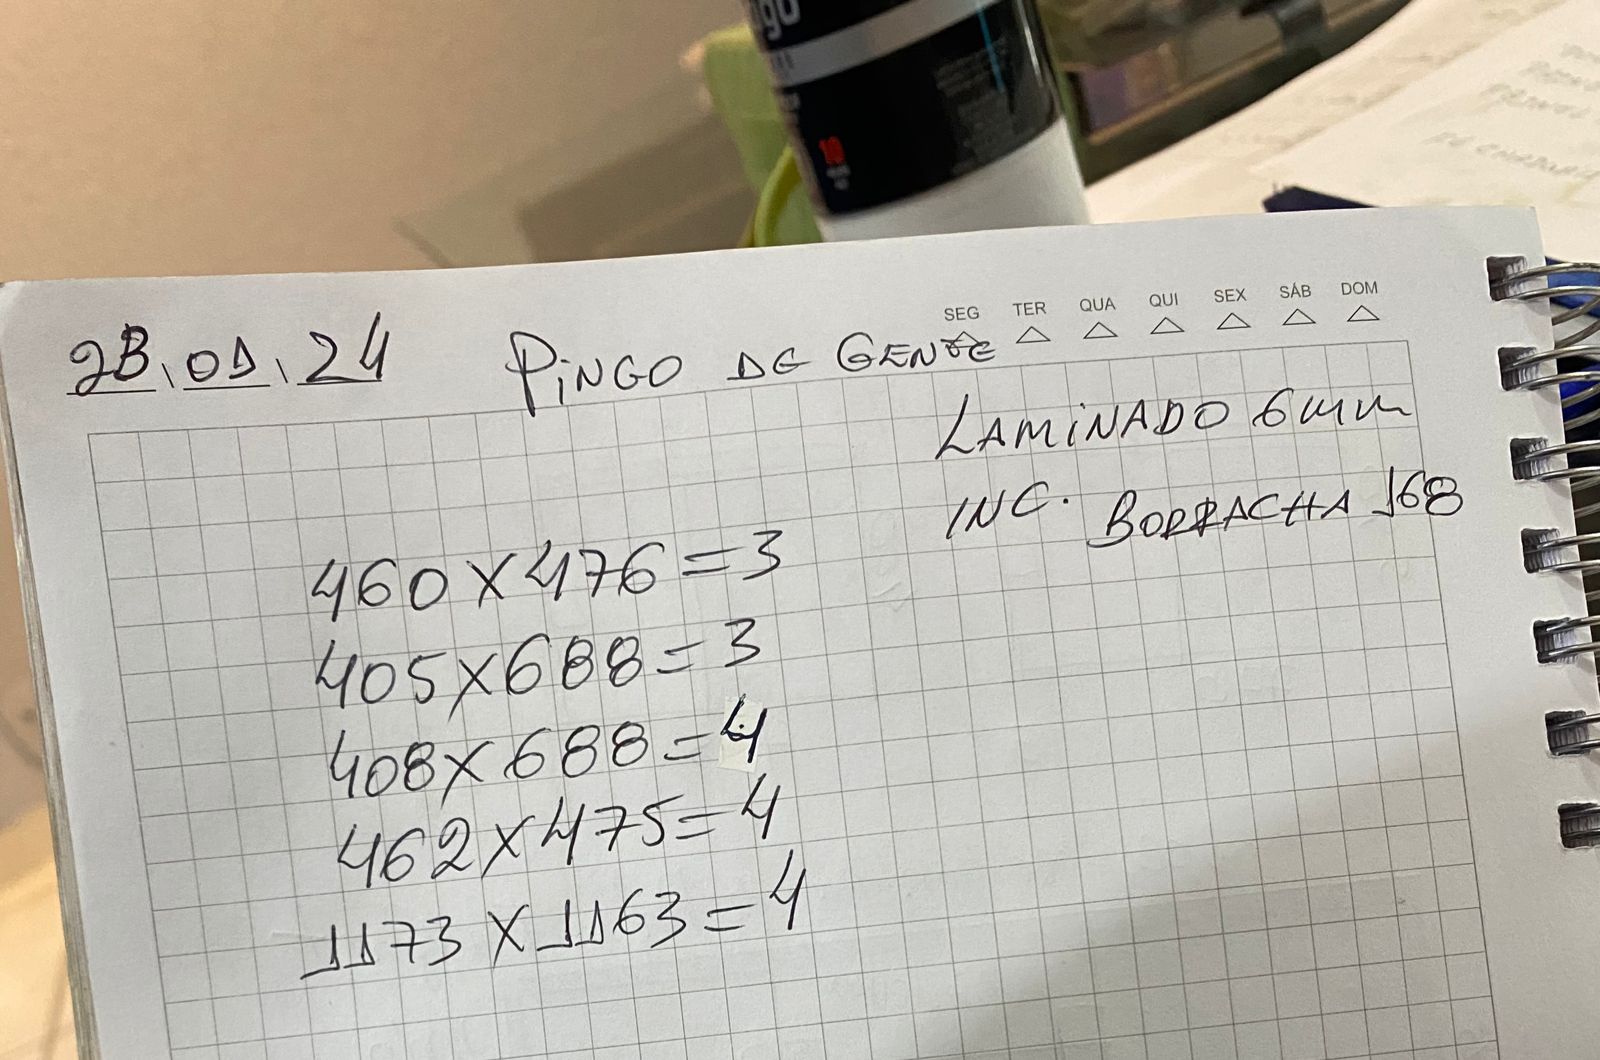 SEG TER QUA QUI SEX SÁB DOM
28.01.24 PiNGO DE GENTE
LAMiNADO 6mm
INC. BORRACHA 168
460X476=3
405X688=3
408X688=4
462X475=4
1173X1163=4